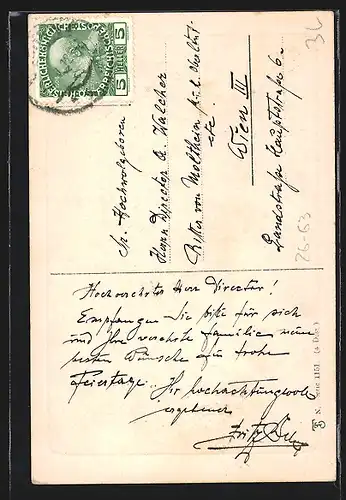 5 HELLER 5
Sr. Hochwolgeboren
Herrn Director A. Walcher
Ritter von Moltheim
etc.
Wien III
Landstraße Hauptstraße 6
26-63
Hochverehrter Herr Director!
Empfangen Sie bitte für sich
und Ihre verehrte Familie meine
besten Wünsche zu frohe
Feiertage. Ihr hochachtungsvoll
ergebener
Fritz
Serie 1151